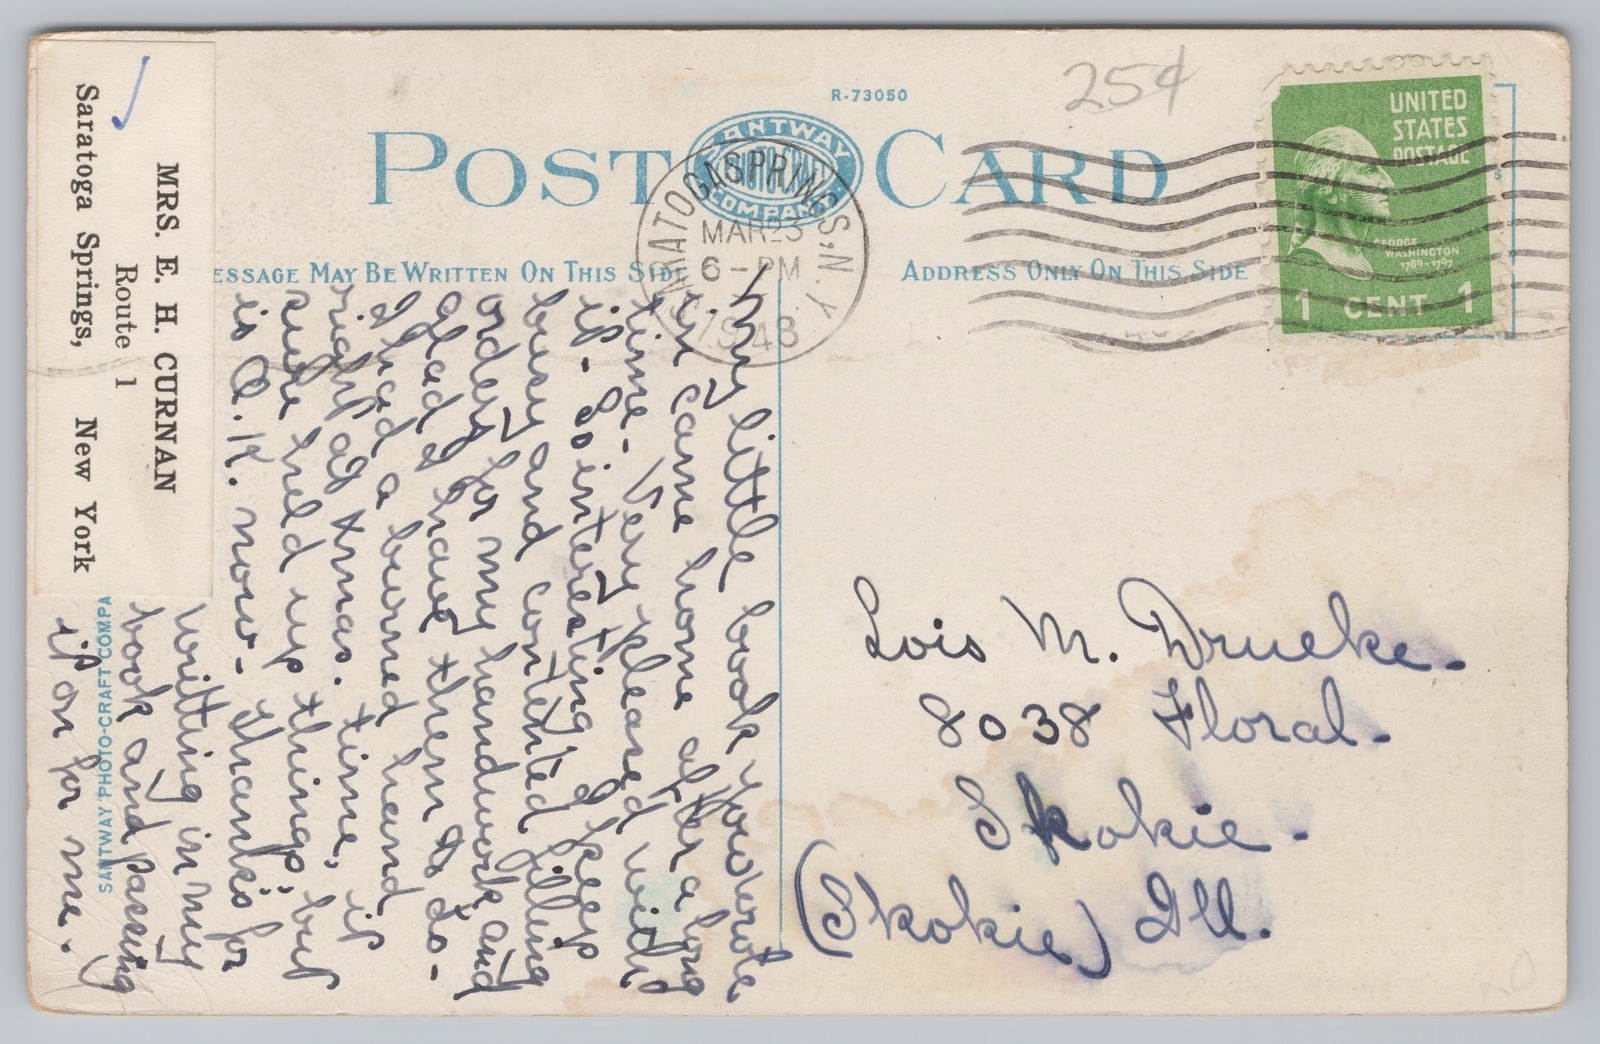 25¢
R-73050
POST CARD
SANTWAY
PHOTO-CRAFT
COMPANY
SARATOGA SPRINGS, N.Y.
MAR 23
6-PM
1943
UNITED
STATES
POSTAGE
GEORGE
WASHINGTON
1789-1797
1 CENT 1
ESSAGE MAY BE WRITTEN ON THIS SIDE
ADDRESS ONLY ON THIS SIDE
MRS. E. H. CURNAN
Route 1
Saratoga Springs, New York
My little book you wrote
in came home after a long
time. Very pleased with
it. So interesting, I keep
busy and contented filling
orders for my handwork and
glad I have them to do.
I had a burned hand
right at Xmas. time, it
sure held up things, but
is O.K. now. Thanks for
writting in my
book and passing
it on for me.
SANTWAY PHOTO-CRAFT COMPA
Lois M. Drucke.
8038 Floral.
Skokie.
(Skokie) Ill.